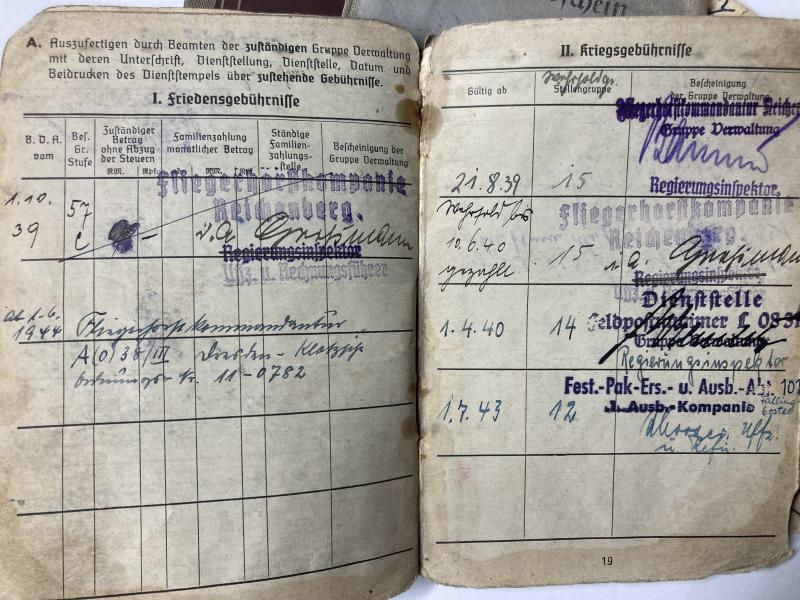 schein
2
A. Auszufertigen durch Beamten der zuständigen Gruppe Verwaltung
mit deren Unterschrift, Dienststellung, Dienststelle, Datum und
Beidrucken des Dienststempels über zustehende Gebührnisse.
I. Friedensgebührnisse
B. D. A. vom
Bes. Gr. Stufe
Zuständiger Betrag ohne Abzug der Steuern
RM. Rpf.
Familienzahlung monatlicher Betrag
RM. Rpf.
Ständige Familien-zahlungs-stelle
Bescheinigung der Gruppe Verwaltung
1.10.
39
57
c
Fliegerhorstkompanie
Reichenberg.
i.A. Großmann
Regierungsinspektor
Uffz. u. Rechnungsführer
ab 1.6.
1944
Fliegerhorstkommandantur
A(o) 38/III Dresden-Klotzsche
Ordnungs Nr. 11-0782
II. Kriegsgebührnisse
Gültig ab
Wehrsoldgr.
Stellengruppe
Bescheinigung
der Gruppe Verwaltung
Fliegerhorstkommandantur Reichen
Gruppe Verwaltung
21.8.39
15
Regierungsinspektor,
Wehrsold bis
10.6.40
gezahlt
15
Fliegerhorstkompanie
Reichenberg.
i.A. Großmann
Regierungsinspektor
1.4.40
14
Dienststelle
Feldpostnummer L 0831
Gruppe Verwaltung
Regierungsinspektor
1.7.43
12
Fest.-Pak-Ers.- u. Ausb.-Abt. 101
1. Ausb.-Kompanie
Falling
bostel
Uffz.
u. Refü.
19